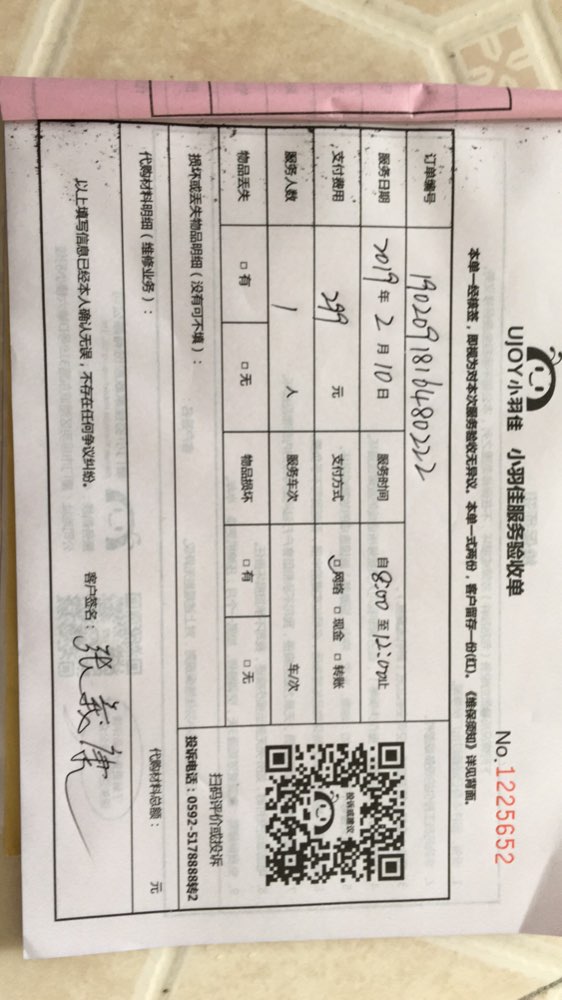 UJOY小羽佳 小羽佳服务验收单
No.1225652
本单一经接签，即视为对本次服务验收无异议。本单一式两份，客户留存一份(红)。《维保须知》详见背面。
订单编号 1902091816480222
服务日期 2019年2月10日 服务时间 自8:00至12:00止
支付费用 299 元 支付方式 □网络 □现金 □转账
服务人数 1 人 服务车次 车/次
物品丢失 □有 □无 物品损坏 □有 □无
投诉或建议
扫码评价或投诉
投诉电话：0592-5178888转2
损坏或丢失物品明细（没有可不填）：
代购材料明细（维修业务）： 代购材料总额： 元
以上填写信息已经本人确认无误，不存在任何争议纠纷。 客户签名：张